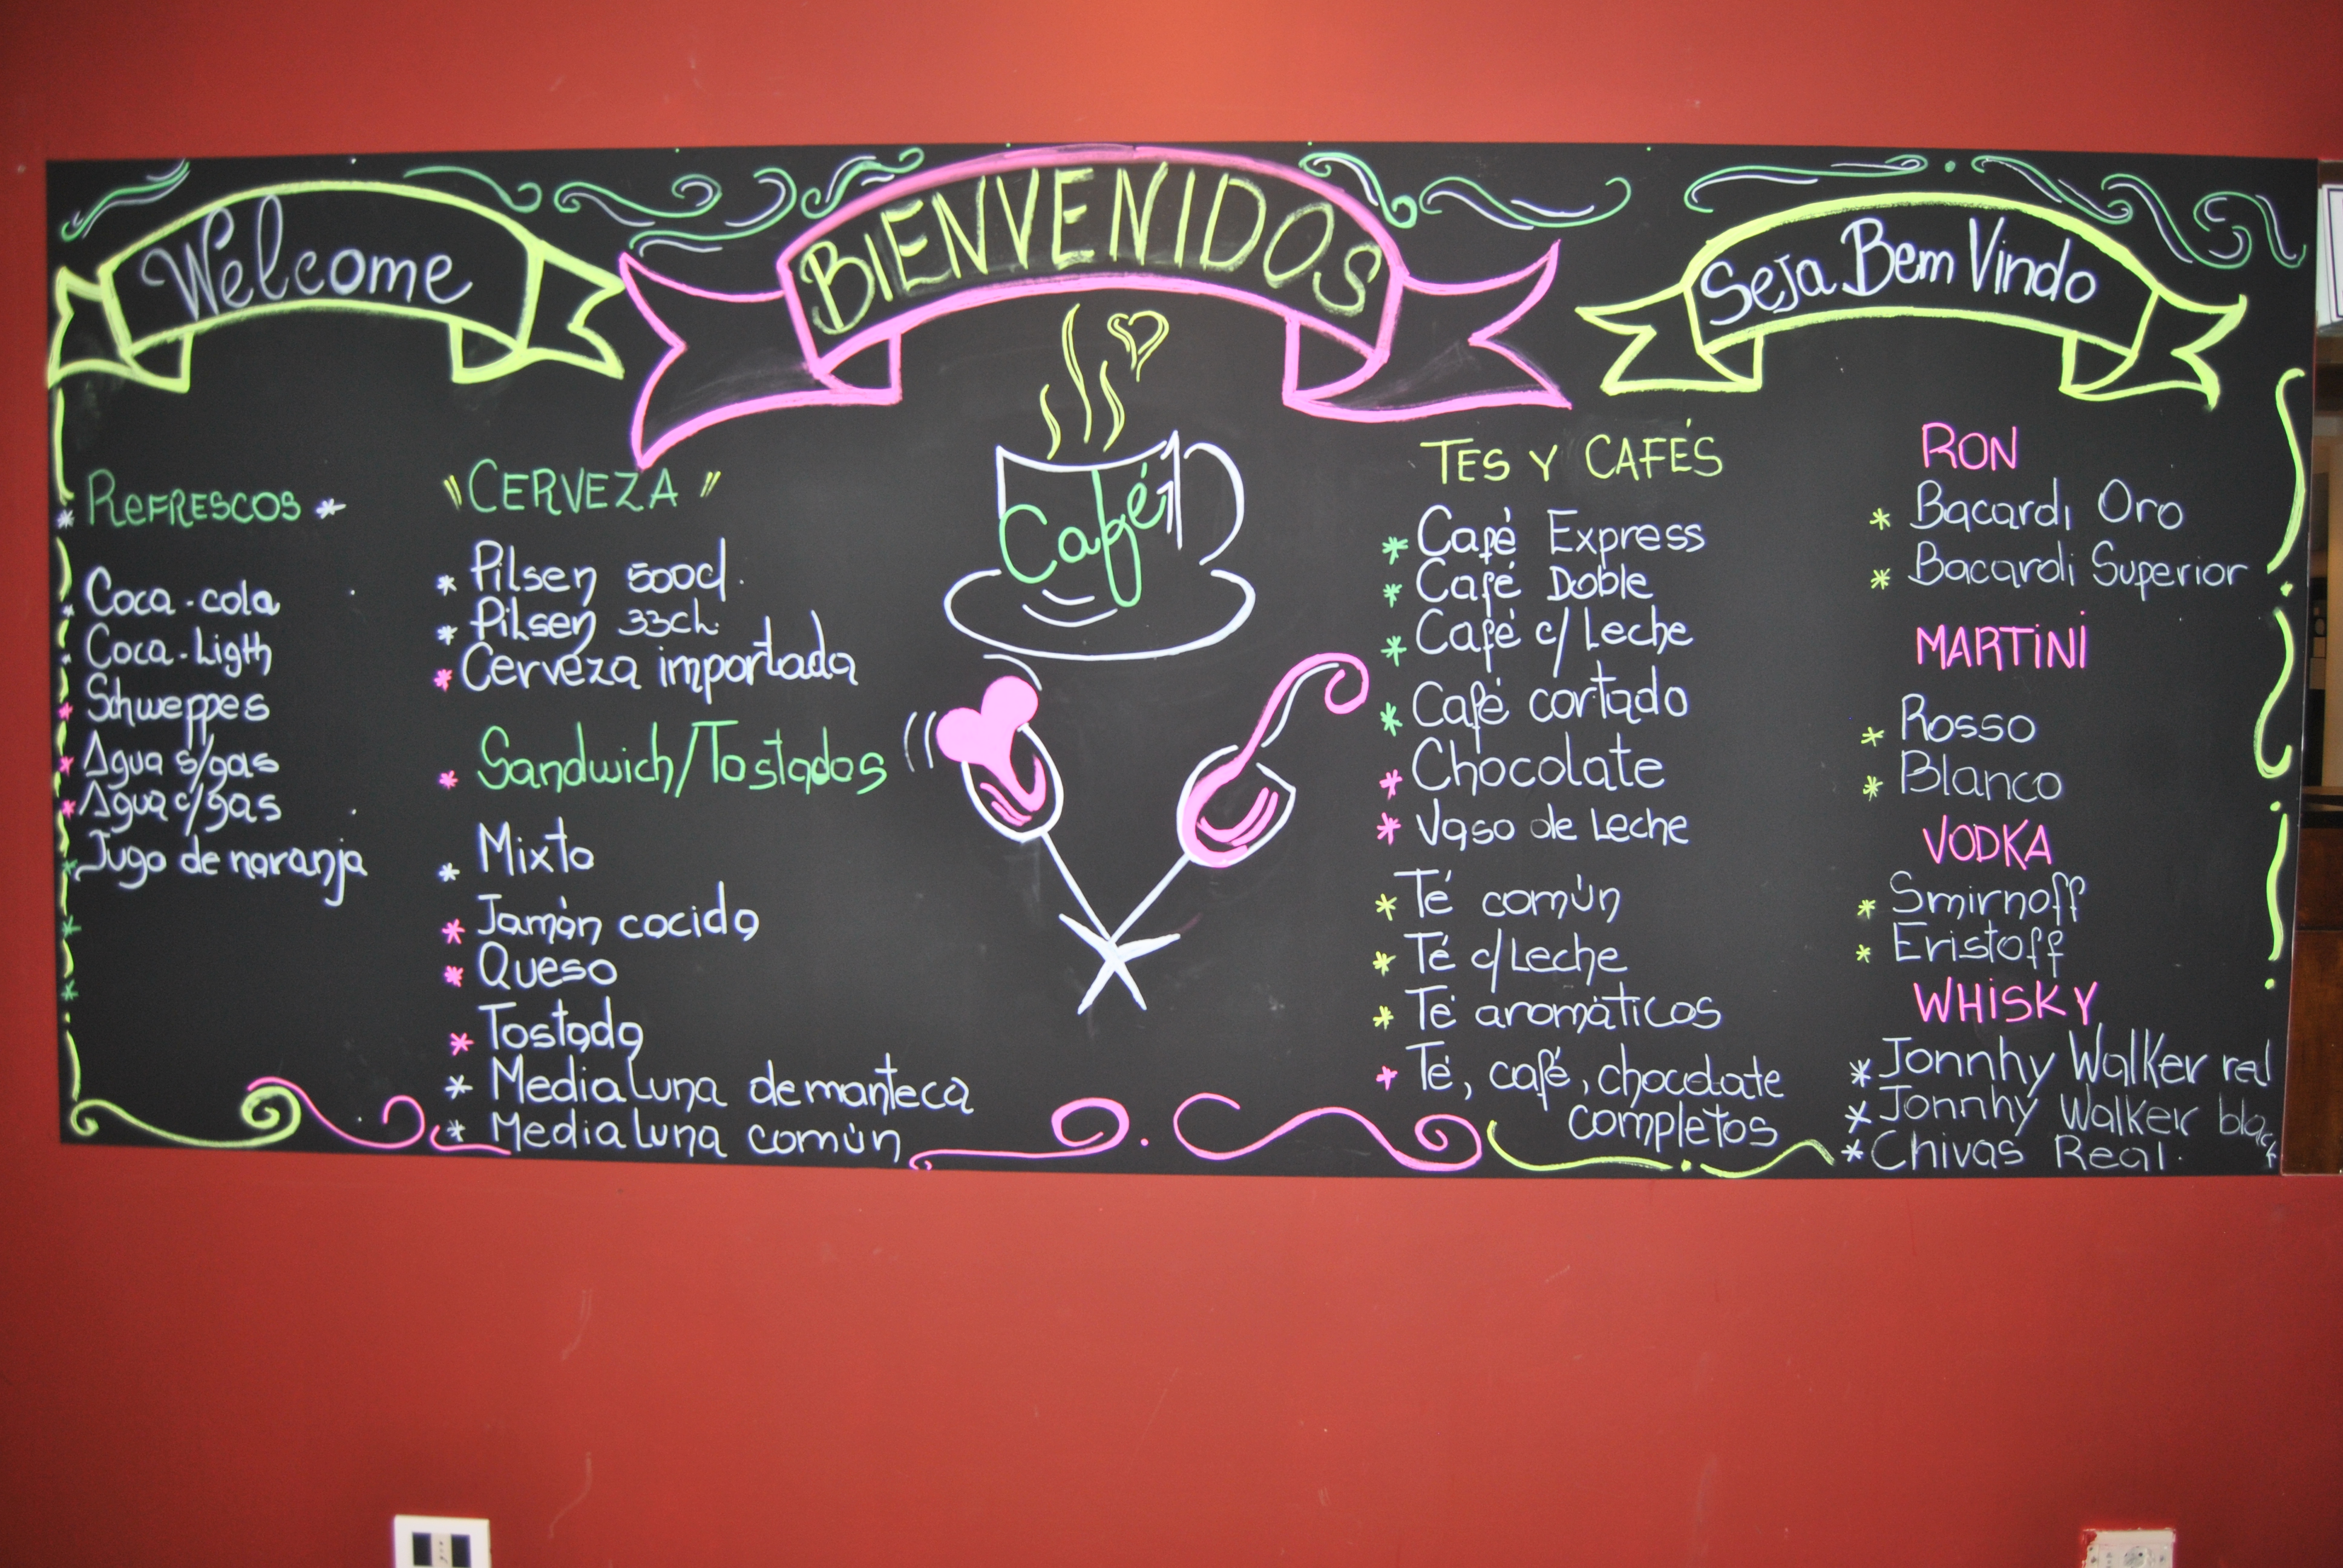 Welcome
BIENVENIDOS
Seja Bem Vindo
REFRESCOS
Coca-cola
Coca-Ligth
Schweppes
Agua s/gas
Agua c/gas
Jugo de naranja
"CERVEZA"
Pilsen 500cl.
Pilsen 33cl.
Cerveza importada
Sandwich/Tostados
Mixto
Jamón cocido
Queso
Tostada
Media Luna de manteca
Media Luna común
Café
TES Y CAFÉS
Café Express
Café Doble
Café c/Leche
Café cortado
Chocolate
Vaso de Leche
Té común
Té c/Leche
Té aromáticos
Té, café, chocolate
completos
RON
Bacardi Oro
Bacardi Superior
MARTINI
Rosso
Blanco
VODKA
Smirnoff
Eristoff
WHISKY
Jonnhy Walker red
Jonnhy Walker black
Chivas Real.